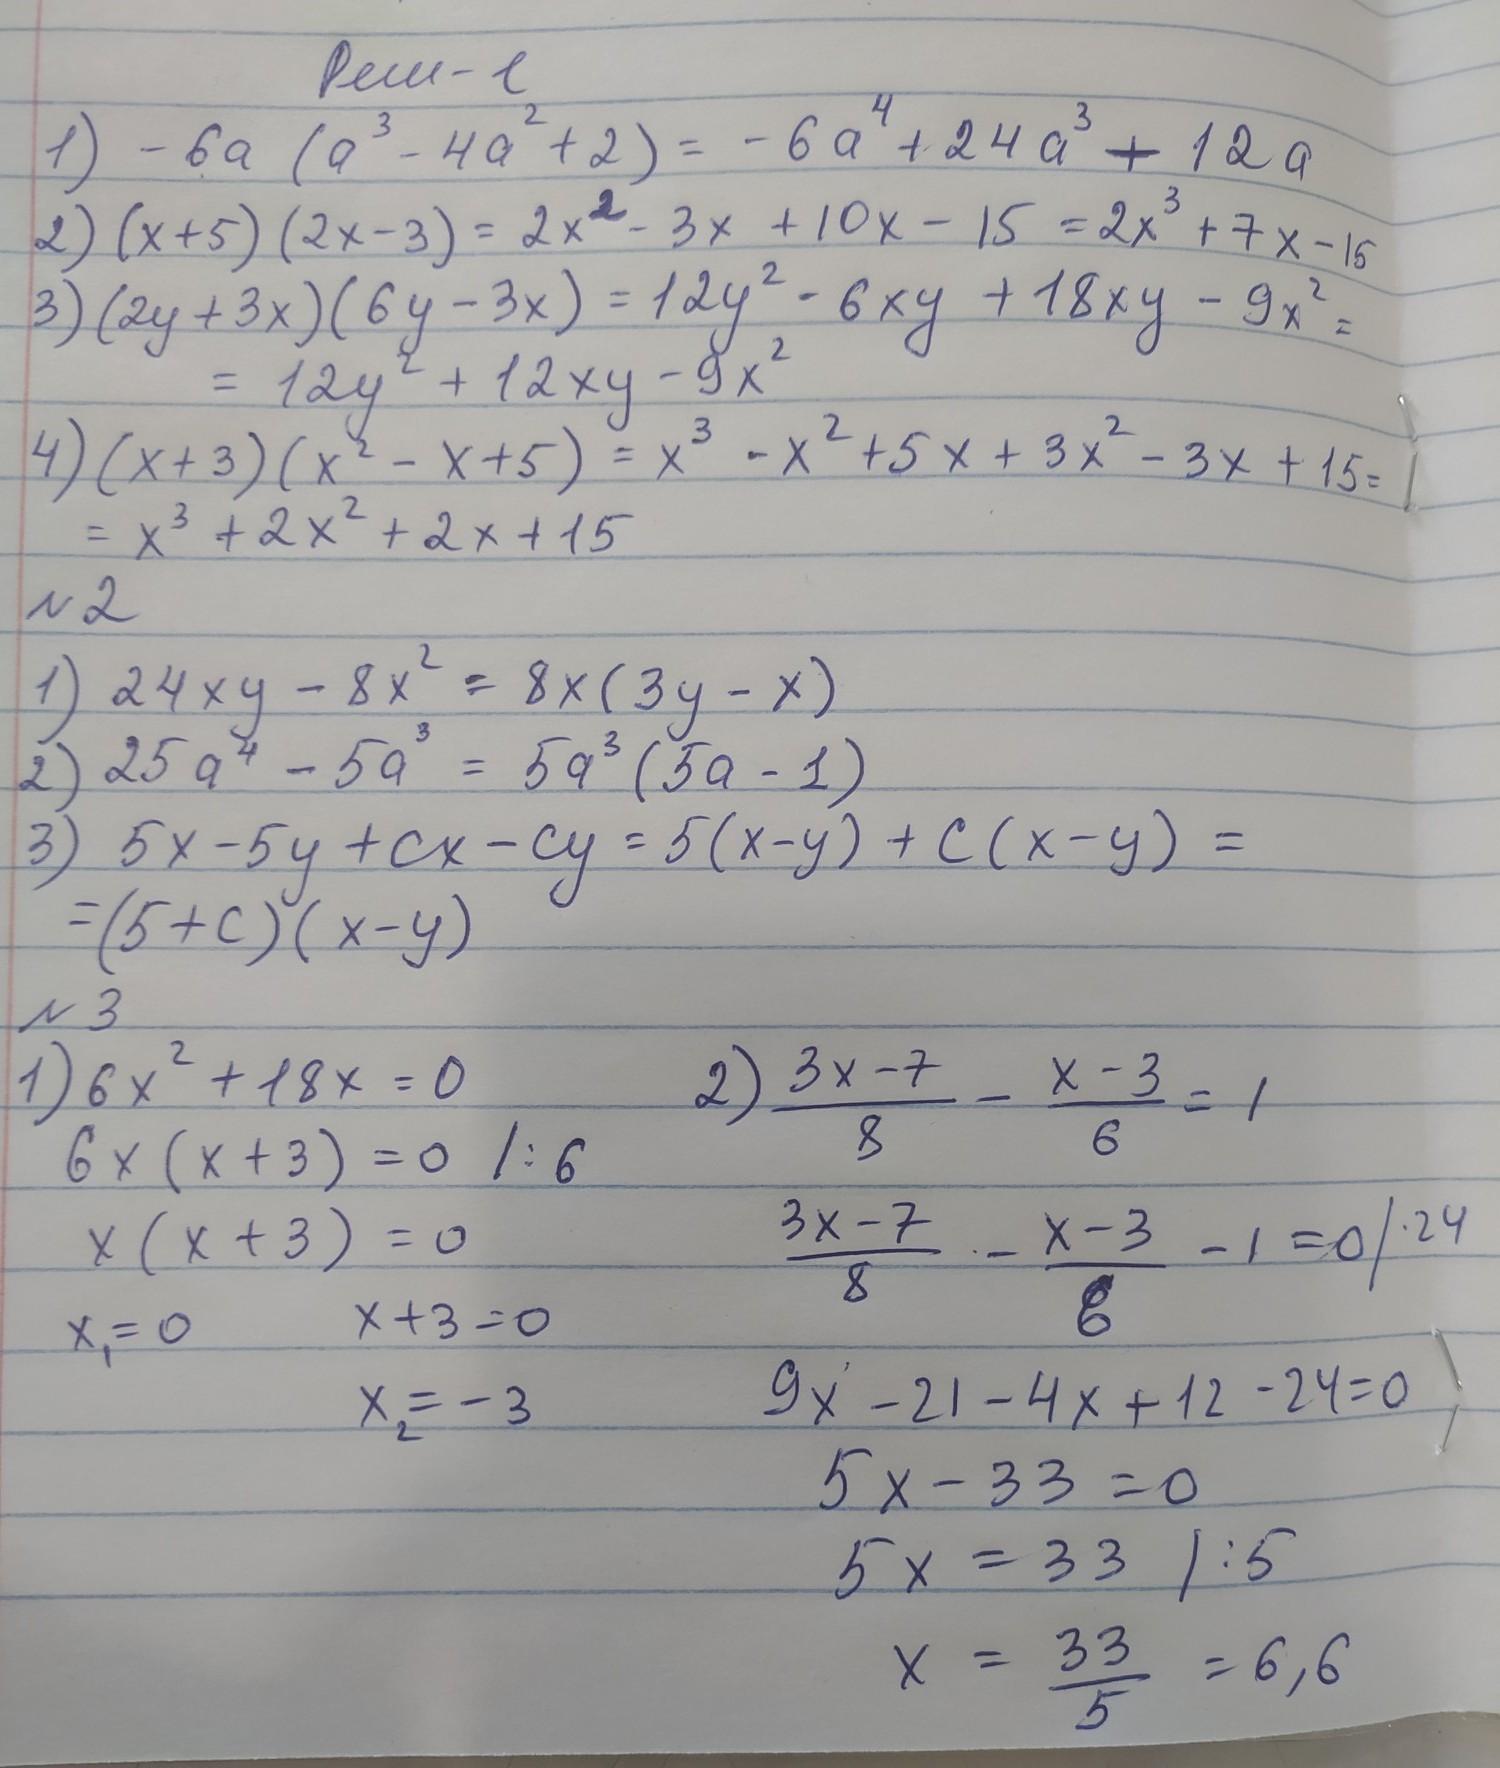 Реш-1
1) -6a (a³ - 4a² + 2) = -6a⁴ + 24a³ + 12a
2) (x+5)(2x-3) = 2x² - 3x + 10x - 15 = 2x³ + 7x - 15
3) (2y+3x)(6y-3x) = 12y² - 6xy + 18xy - 9x² =
= 12y² + 12xy - 9x²
4) (x+3)(x² - x+5) = x³ - x² + 5x + 3x² - 3x + 15 =
= x³ + 2x² + 2x + 15
№2
1) 24xy - 8x² = 8x(3y - x)
2) 25a⁴ - 5a³ = 5a³(5a - 1)
3) 5x - 5y + cx - cy = 5(x-y) + c(x-y) =
= (5+c)(x-y)
№3
1) 6x² + 18x = 0
6x(x+3) = 0 /:6
x(x+3) = 0
x₁ = 0 x+3 = 0
x₂ = -3
2) (3x-7)/8 - (x-3)/6 = 1
(3x-7)/8 - (x-3)/6 - 1 = 0 /·24
9x - 21 - 4x + 12 - 24 = 0
5x - 33 = 0
5x = 33 /:5
x = 33/5 = 6,6